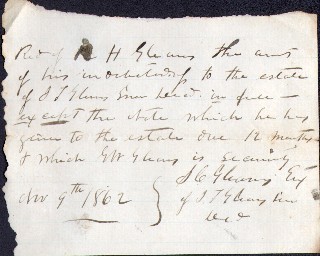 Recd of R H Gleans the amt
of his indebtedness to the estate
of J T Gleans Senr Decd. in full
except the Note which he has
given to the estate due 12 months
& which GW Gleans is security
Nov 9th 1862
J C Gleans Exr
of J T Gleans Senr
Decd